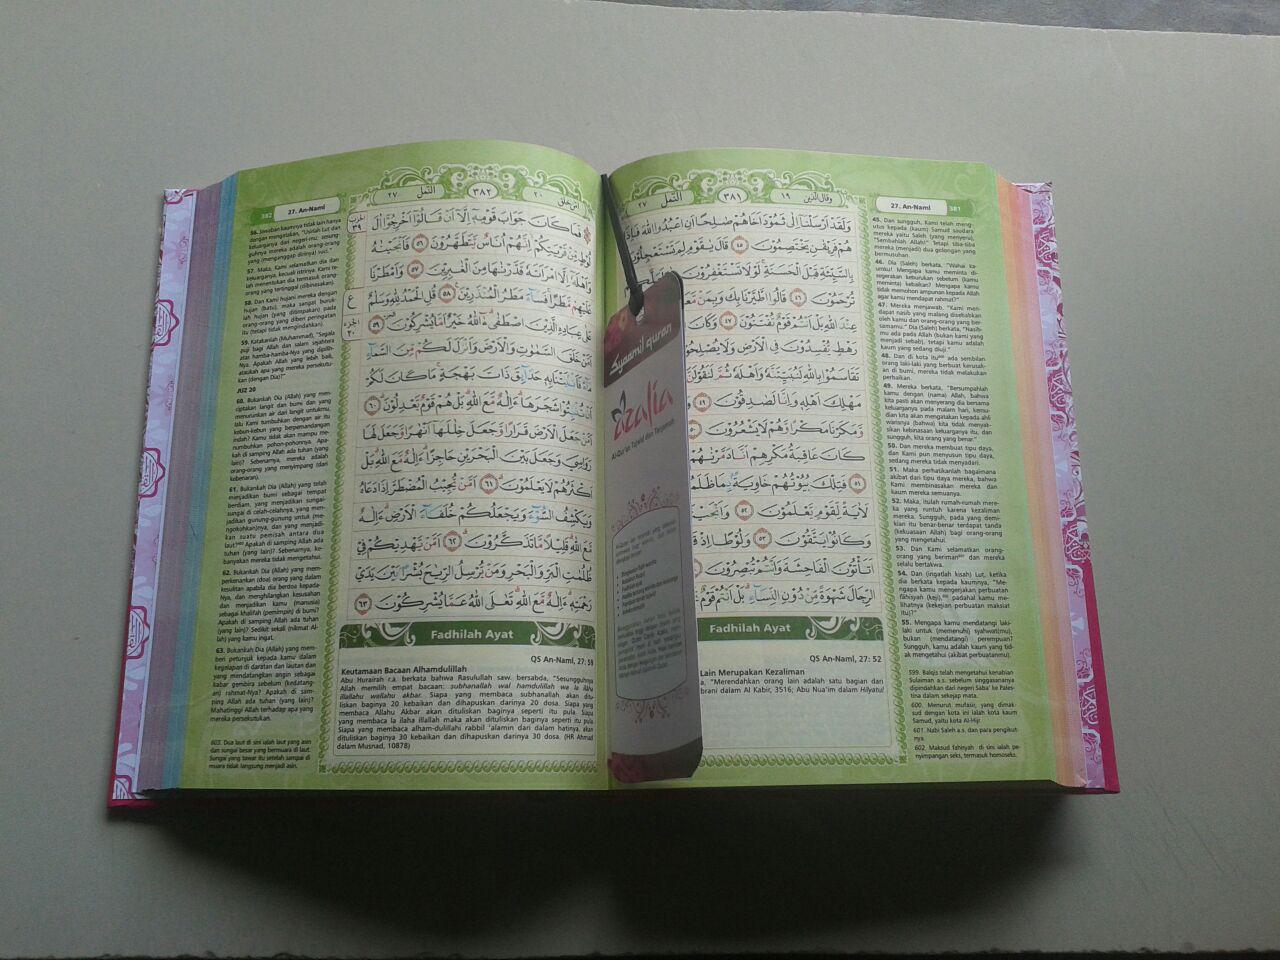 382
27. An-Naml
٢٧
النَّمْل
٣٨٢
٢٠
56. Jawaban kaumnya tidak lain hanya
dengan mengatakan, "Usirlah Lut dan
keluarganya dari negeri-mu; sesung-
guhnya mereka adalah orang-orang
yang (menganggap dirinya) suci."
57. Maka, Kami selamatkan dia dan
keluarganya, kecuali istrinya. Kami te-
lah menentukan dia termasuk orang-
orang yang tertinggal (dibinasakan).
58. Dan Kami hujani mereka dengan
hujan (batu), maka sangat buruk-
lah hujan (yang ditimpakan) pada
orang-orang yang diberi peringatan
itu (tetapi tidak mengindahkan).
59. Katakanlah (Muhammad), "Segala
puji bagi Allah dan salam sejahtera
atas hamba-hamba-Nya yang dipilih-
Nya. Apakah Allah yang lebih baik,
ataukah apa yang mereka persekutu-
kan (dengan Dia)?"
JUZ 20
60. Bukankah Dia (Allah) yang men-
ciptakan langit dan bumi dan yang
menurunkan air dari langit untukmu,
lalu Kami tumbuhkan dengan air itu
kebun-kebun yang berpemandangan
indah? Kamu tidak akan mampu me-
numbuhkan pohon-pohonnya. Apa-
kah di samping Allah ada tuhan (yang
lain)? Sebenarnya, mereka adalah
orang-orang yang menyimpang (dari
kebenaran).
61. Bukankah Dia (Allah) yang telah
menjadikan bumi sebagai tempat
berdiam, yang menjadikan sungai-
sungai di celah-celahnya, yang men-
jadikan gunung-gunung untuk (me-
ngokohkan)nya, dan yang menjadi-
kan suatu pemisah antara dua
laut? Apakah di samping Allah ada
tuhan (yang lain)? Sebenarnya, ke-
banyakan mereka tidak mengetahui.
62. Bukankah Dia (Allah) yang mem-
perkenankan (doa) orang yang dalam
kesulitan apabila dia berdoa kepada-
Nya, dan menghilangkan kesusahan
dan menjadikan kamu (manusia)
sebagai khalifah (pemimpin) di bumi?
Apakah di samping Allah ada tuhan
(yang lain)? Sedikit sekali (nikmat Al-
lah) yang kamu ingat.
63. Bukankah Dia (Allah) yang mem-
beri petunjuk kepada kamu dalam
kegelapan di daratan dan lautan dan
yang mendatangkan angin sebagai
kabar gembira sebelum (kedatang-
an) rahmat-Nya? Apakah di sam-
ping Allah ada tuhan (yang lain)?
Mahatinggi Allah terhadap apa yang
mereka persekutukan.
603. Dua laut di sini ialah laut yang asin
dan sungai besar yang bermuara di laut.
Sungai yang tawar itu setelah sampai di
muara tidak langsung menjadi asin.
فَمَا كَانَ جَوَابَ قَوْمِهٖٓ اِلَّآ اَنْ قَالُوْٓا اَخْرِجُوْٓا اٰلَ
لُوْطٍ مِّنْ قَرْيَتِكُمْۙ اِنَّهُمْ اُنَاسٌ يَّتَطَهَّرُوْنَ ٥٦ فَاَنْجَيْنٰهُ
وَاَهْلَهٗٓ اِلَّا امْرَاَتَهٗ قَدَّرْنٰهَا مِنَ الْغٰبِرِيْنَ ٥٧ وَاَمْطَرْنَا
عَلَيْهِمْ مَّطَرًاۚ فَسَاۤءَ مَطَرُ الْمُنْذَرِيْنَ ٥٨ قُلِ الْحَمْدُ لِلّٰهِ وَسَلٰمٌ
عَلٰى عِبَادِهِ الَّذِيْنَ اصْطَفٰىۗ ءٰۤاللّٰهُ خَيْرٌ اَمَّا يُشْرِكُوْنَ ٥٩
اَمَّنْ خَلَقَ السَّمٰوٰتِ وَالْاَرْضَ وَاَنْزَلَ لَكُمْ مِّنَ السَّمَاۤءِ
مَاۤءًۚ فَاَنْۢبَتْنَا بِهٖ حَدَاۤىِٕقَ ذَاتَ بَهْجَةٍۚ مَا كَانَ لَكُمْ
اَنْ تُنْۢبِتُوْا شَجَرَهَاۗ ءَاِلٰهٌ مَّعَ اللّٰهِ ۗبَلْ هُمْ قَوْمٌ يَّعْدِلُوْنَ ٦٠
اَمَّنْ جَعَلَ الْاَرْضَ قَرَارًا وَّجَعَلَ خِلٰلَهَآ اَنْهٰرًا وَّجَعَلَ لَهَا
رَوَاسِيَ وَجَعَلَ بَيْنَ الْبَحْرَيْنِ حَاجِزًاۗ ءَاِلٰهٌ مَّعَ اللّٰهِ ۗبَلْ
اَكْثَرُهُمْ لَا يَعْلَمُوْنَ ٦١ اَمَّنْ يُّجِيْبُ الْمُضْطَرَّ اِذَا دَعَاهُ
وَيَكْشِفُ السُّوْۤءَ وَيَجْعَلُكُمْ خُلَفَاۤءَ الْاَرْضِۗ ءَاِلٰهٌ
مَّعَ اللّٰهِ ۗقَلِيْلًا مَّا تَذَكَّرُوْنَ ٦٢ اَمَّنْ يَّهْدِيْكُمْ فِيْ
ظُلُمٰتِ الْبَرِّ وَالْبَحْرِ وَمَنْ يُّرْسِلُ الرِّيٰحَ بُشْرًاۢ بَيْنَ يَدَيْ
رَحْمَتِهٖۗ ءَاِلٰهٌ مَّعَ اللّٰهِ ۗتَعٰلَى اللّٰهُ عَمَّا يُشْرِكُوْنَ ٦٣
Fadhilah Ayat
QS An-Naml, 27: 59
Keutamaan Bacaan Alhamdulillah
Abu Hurairah r.a. berkata bahwa Rasulullah saw. bersabda, "Sesungguhnya
Allah memilih empat bacaan: subhanallah wal hamdulillah wa la ilaha
illallahu wallahu akbar. Siapa yang membaca subhanallah akan ditu-
liskan baginya 20 kebaikan dan dihapuskan darinya 20 dosa. Siapa yang
membaca Allahu Akbar akan dituliskan baginya seperti itu pula. Siapa
yang membaca la ilaha illallah maka akan dituliskan baginya seperti itu pula.
Siapa yang membaca alham-dulillahi rabbil 'alamin dari dalam hatinya, akan
dituliskan baginya 30 kebaikan dan dihapuskan darinya 30 dosa. (HR Ahmad
dalam Musnad, 10878)
Syaamil quran
Azalia
Al-Qur'an Tajwid dan Terjemah
٢٧
النَّمْل
٣٨١
١٩
وقال الذين
27. An-Naml
381
وَلَقَدْ اَرْسَلْنَآ اِلٰى ثَمُوْدَ اَخَاهُمْ صٰلِحًا اَنِ اعْبُدُوا اللّٰهَ فَاِذَا
هُمْ فَرِيْقٰنِ يَخْتَصِمُوْنَ ٤٥ قَالَ يٰقَوْمِ لِمَ تَسْتَعْجِلُوْنَ
بِالسَّيِّئَةِ قَبْلَ الْحَسَنَةِۚ لَوْلَا تَسْتَغْفِرُوْنَ
تُرْحَمُوْنَ ٤٦ قَالُوا اطَّيَّرْنَا بِكَ وَبِمَنْ
عِنْدَ اللّٰهِ بَلْ اَنْتُمْ قَوْمٌ تُفْتَنُوْنَ ٤٧ وَكَانَ
رَهْطٍ يُّفْسِدُوْنَ فِى الْاَرْضِ وَلَا يُصْلِحُوْنَ
تَقَاسَمُوْا بِاللّٰهِ لَنُبَيِّتَنَّهٗ وَاَهْلَهٗ ثُمَّ لَنَقُوْلَنَّ
مَهْلِكَ اَهْلِهٖ وَاِنَّا لَصٰدِقُوْنَ ٤٩
وَّمَكَرْنَا مَكْرًا وَّهُمْ لَا يَشْعُرُوْنَ
كَانَ عَاقِبَةُ مَكْرِهِمْ اَنَّا دَمَّرْنٰهُمْ
٥١ فَتِلْكَ بُيُوْتُهُمْ خَاوِيَةً ۢبِمَا ظَلَمُوْا
لَاٰيَةً لِّقَوْمٍ يَّعْلَمُوْنَ ٥٢ وَاَنْجَيْنَا
وَكَانُوْا يَتَّقُوْنَ ٥٣ وَلُوْطًا اِذْ
اَتَأْتُوْنَ الْفَاحِشَةَ وَاَنْتُمْ تُبْصِرُوْنَ ٥٤
الرِّجَالَ شَهْوَةً مِّنْ دُوْنِ النِّسَاۤءِ ۗبَلْ اَنْتُمْ قَوْمٌ
Fadhilah Ayat
QS An-Naml, 27: 52
Lain Merupakan Kezaliman
a, "Merendahkan orang lain adalah satu bagian dari
brani dalam Al Kabir, 3516; Abu Nua'im dalam Hilyatul
45. Dan sungguh, Kami telah meng-
utus kepada (kaum) Samud saudara
mereka yaitu Saleh (yang menyeru),
"Sembahlah Allah!" Tetapi tiba-tiba
mereka (menjadi) dua golongan yang
bermusuhan.
46. Dia (Saleh) berkata, "Wahai ka-
umku! Mengapa kamu meminta di-
segerakan keburukan sebelum (kamu
meminta) kebaikan? Mengapa kamu
tidak memohon ampunan kepada Allah
agar kamu mendapat rahmat?"
47. Mereka menjawab, "Kami men-
dapat nasib yang malang disebabkan
oleh kamu dan orang-orang yang ber-
samamu." Dia (Saleh) berkata, "Nasib-
mu ada pada Allah (bukan kami yang
menjadi sebab), tetapi kamu adalah
kaum yang sedang diuji."
48. Dan di kota itu ada sembilan
orang laki-laki yang berbuat kerusak-
an di bumi, mereka tidak melakukan
perbaikan.
49. Mereka berkata, "Bersumpahlah
kamu dengan (nama) Allah, bahwa
kita pasti akan menyerang dia bersama
keluarganya pada malam hari, kemu-
dian kita akan mengatakan kepada ahli
warisnya (bahwa) kita tidak menyak-
sikan kebinasaan keluarganya itu, dan
sungguh, kita orang yang benar."
50. Dan mereka membuat tipu daya,
dan Kami pun menyusun tipu daya,
sedang mereka tidak menyadari.
51. Maka perhatikanlah bagaimana
akibat dari tipu daya mereka, bahwa
Kami membinasakan mereka dan
kaum mereka semuanya.
52. Maka, itulah rumah-rumah mere-
ka yang runtuh karena kezaliman
mereka. Sungguh, pada yang demi-
kian itu benar-benar terdapat tanda
(kekuasaan Allah) bagi orang-orang
yang mengetahui.
53. Dan Kami selamatkan orang-
orang yang beriman dan mereka
selalu bertakwa.
54. Dan (ingatlah kisah) Lut, ketika
dia berkata kepada kaumnya, "Me-
ngapa kamu mengerjakan perbuatan
fāhisyah (keji), padahal kamu me-
lihatnya (kekejian perbuatan maksiat
itu)?"
55. Mengapa kamu mendatangi laki-
laki untuk (memenuhi) syahwat(mu),
bukan (mendatangi) perempuan?
Sungguh, kamu adalah kaum yang tid-
ak mengetahui (akibat perbuatanmu).
599. Balqis telah mengetahui kenabian
Sulaiman a.s. sebelum singgasananya
dipindahkan dari negeri Saba' ke Pales-
tina dalam sekejap mata.
600. Menurut mufasir, yang dimak-
sud dengan kota ini ialah kota kaum
Samud, yaitu kota Al-Hijr.
601. Nabi Saleh a.s. dan para pengikut-
nya.
602. Maksud fahisyah di sini ialah pe-
nyimpangan seks, termasuk homoseks.